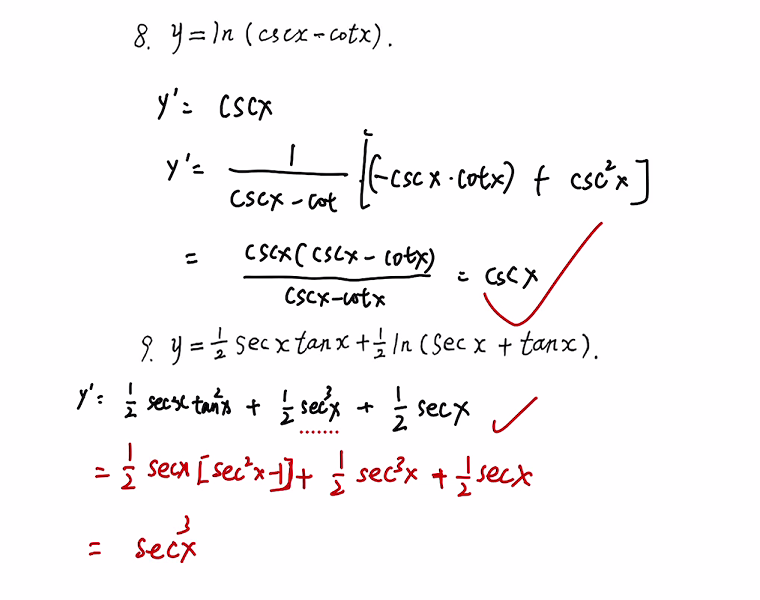 8. y = ln (cscx - cotx).
y' = cscx
y' = \frac{1}{cscx - cot} [(-cscx · cotx) + csc²x]
= \frac{cscx(cscx - cotx)}{cscx - cotx} = cscx
9. y = \frac{1}{2} secx tanx + \frac{1}{2} ln (secx + tanx).
y' = \frac{1}{2} secx tan²x + \frac{1}{2} sec³x + \frac{1}{2} secx
= \frac{1}{2} secx [sec²x - 1] + \frac{1}{2} sec³x + \frac{1}{2} secx
= sec³x